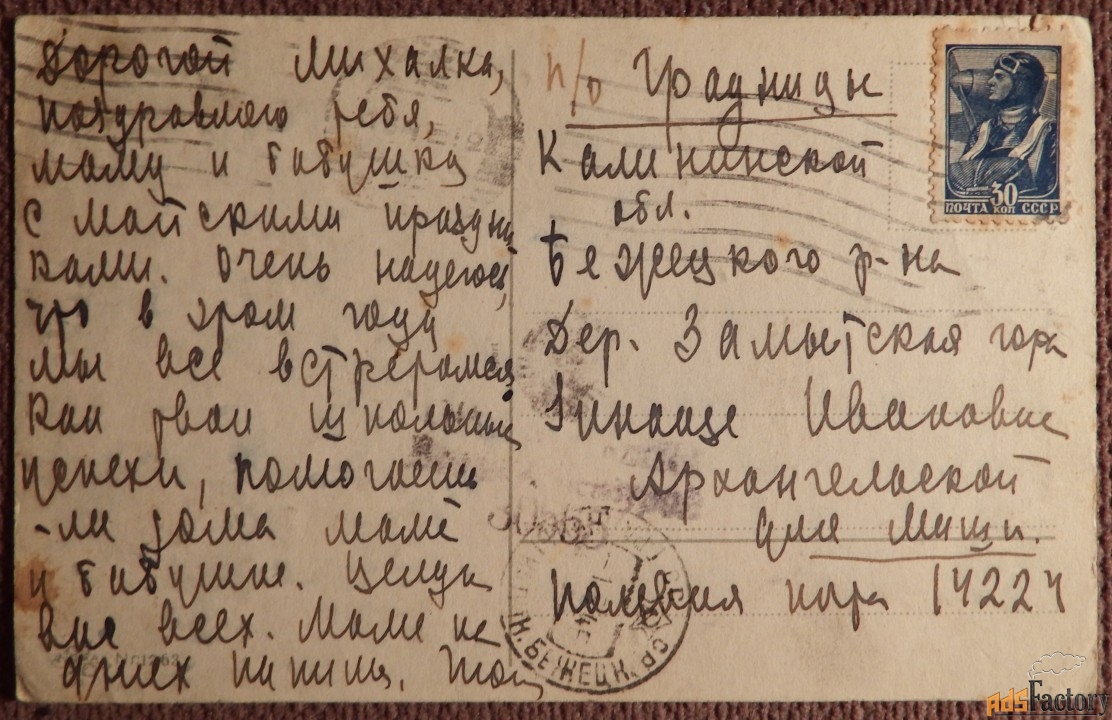 Дорогой Михалка,
поздравляю тебя,
маму и бабушку
с майскими праздни
ками. Очень надеюсь,
что в этом году
мы все встретимся
Как твои школьные
успехи, помогаешь
-ли дома маме
и бабушке. Целую
вас всех. Маме на
днях напишу.
п/о Градницы
Калининской
обл.
Бежецкого р-на
Дер. Замытская гора
Зинаиде Ивановне
Архангельской
для Миши.
Полевая почта 14224
30
ПОЧТА КОП СССР
БЕЖЕЦК
AdsFactory